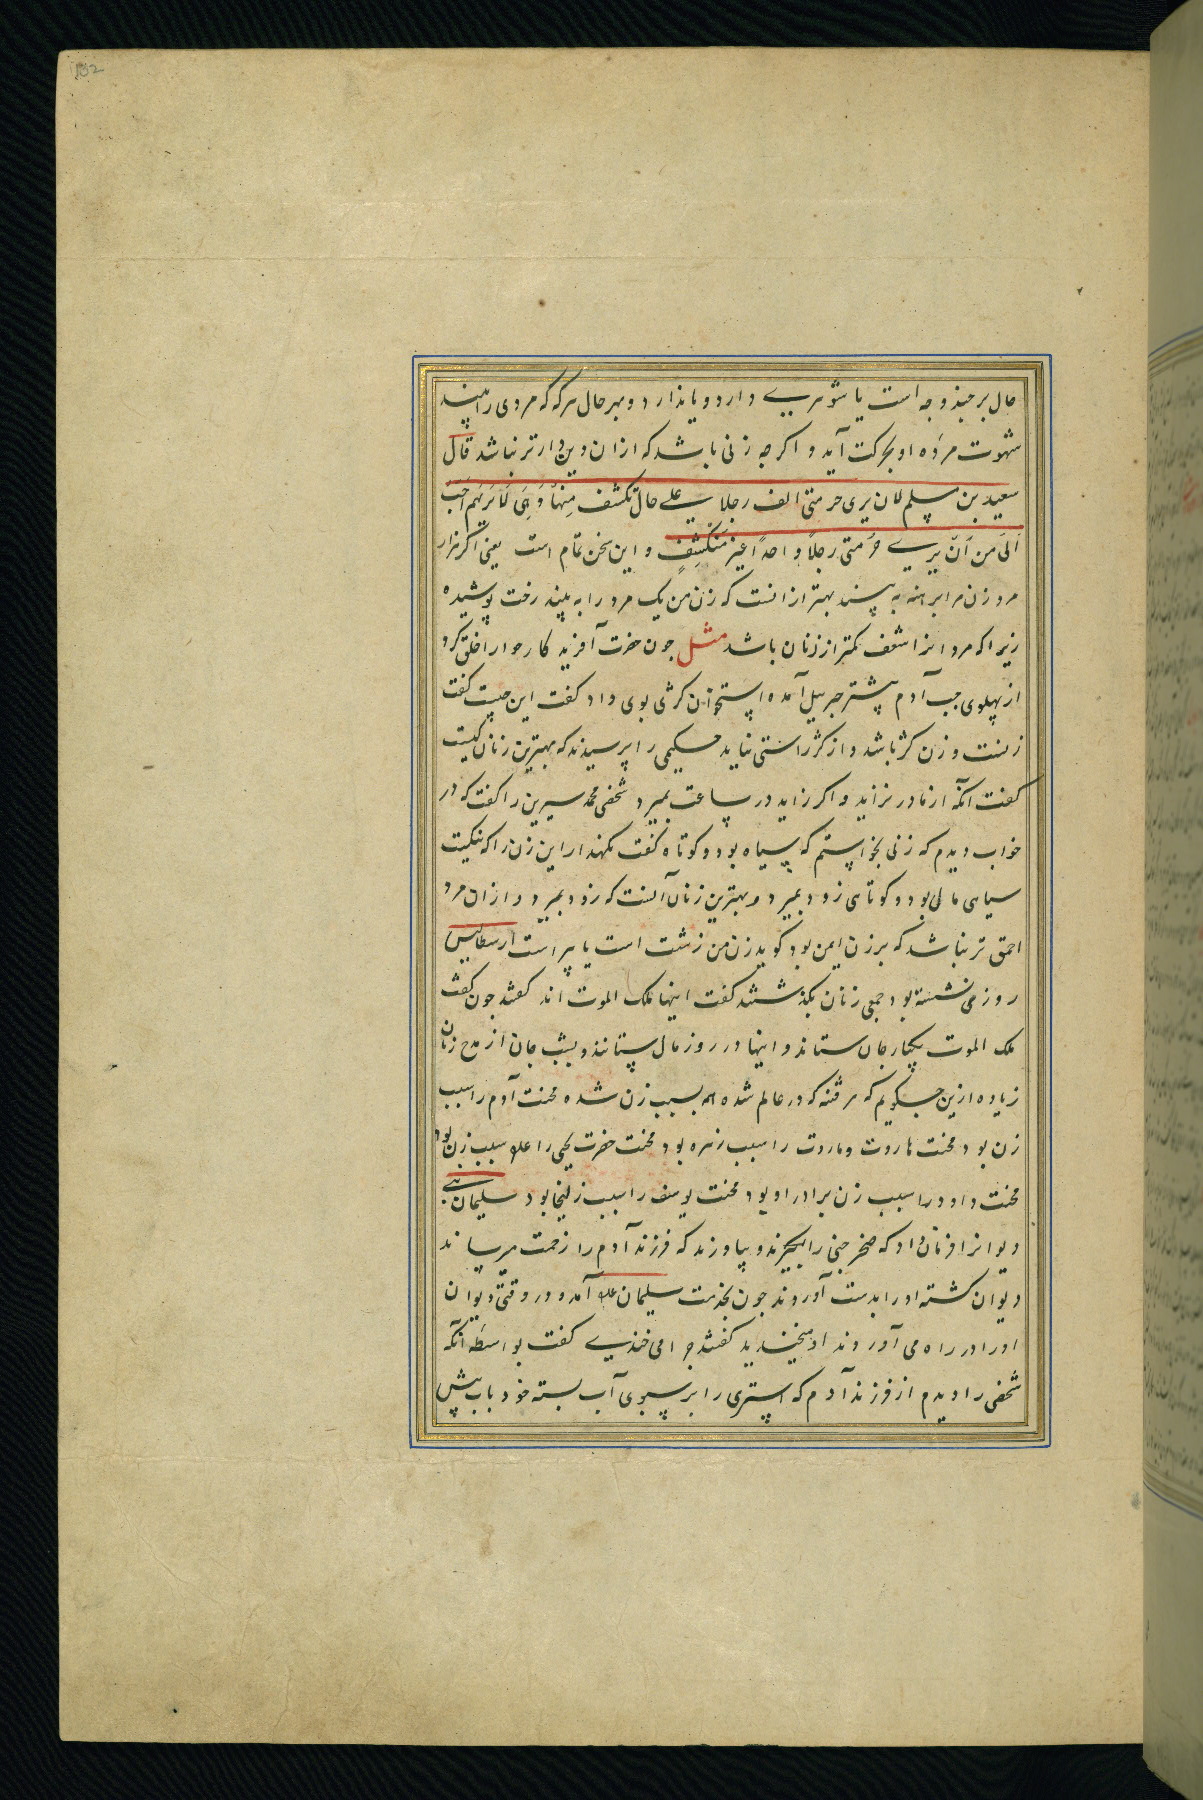 132
حال بر چند وجه است یا شوهری دارد و یا ندارد و بهر حال هرکه که مردی را ببیند
شهوت مرده او بحرکت آید و اکرچه زنی باشد که ازان دین دارتر نباشد قال
سعید بن مسلم لان یری حرمتی الف رجلا علی حال تکشف منها وهی لا تریهم احب
الی من ان یری حرمتی رجلا واحدا غیر منکشف و این سخن تمام است یعنی اکر هزار
مرد زن مرا برهنه به بیند بهتر ازانست که زن من یک مرد را به بیند رخت پوشیده
زیرا که مردانرا شغف کمتر از زنان باشد مثل جون حضرت آفریدکار حوا را خلق کرد
از پهلوی چپ آدم پیشتر جبرییل آمده استخوان کژی بوی داد کفت این چیست کفت
زنست و زن کژ باشد و از کژ راستی نیاید حکیمی را پرسیدند که بهترین زنان کیست
کفت آنکه از مادر نزاید و اکر زاید در ساعت بمیرد شخصی محمد سیرین را کفت که در
خواب دیدم که زنی بخواستم که سیاه بود و کوتاه کفت نکهدار این زن را که نیکیت
سیاهی مالی بود و کوتاهی زود بمیرد و بهترین زنان آنست که زود بمیرد و ازان مرد
احمق تر نباشد که بر زن ایمن بود کوید زن من زشت است یا پیر است ارسطالیس
روزی نشسته بود جمعی زنان بکذشتند کفت اینها ملک الموت اند کفتند جون کفت
ملک الموت یکبار جان ستاند و اینها در روز مال ستانند و بشب جان از مدح زنان
زیاده ازین چکویم که هر فتنه که در عالم شده همه بسبب زن شده محنت آدم را سبب
زن بود محنت هاروت و ماروت را سبب زهره بود محنت حضرت یحیی را علیه سبب زن بود
محنت داود را سبب زن برادر او بود محنت یوسف را سبب زلیخا بود سلیمان نبی
دیوانرا فرمان داد که صخر جنی را بگیرند و بیاورند که فرزند آدم را زحمت میرساند
دیوان کشته او را بدست آوردند جون بخدمت سلیمان علیه آمد و در وقتی دیوان
او را در راه می آوردند او میخندید کفتند چرا می خندی کفت بواسطه آنکه
شخصی را دیدم از فرزند آدم که استری را بر سبوی آب بسته خود باب پیش